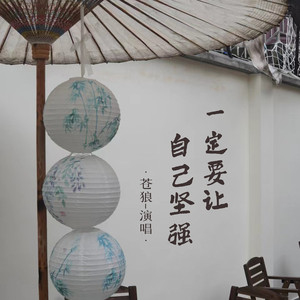 一定要让
自己坚强
·苍狼-演唱·